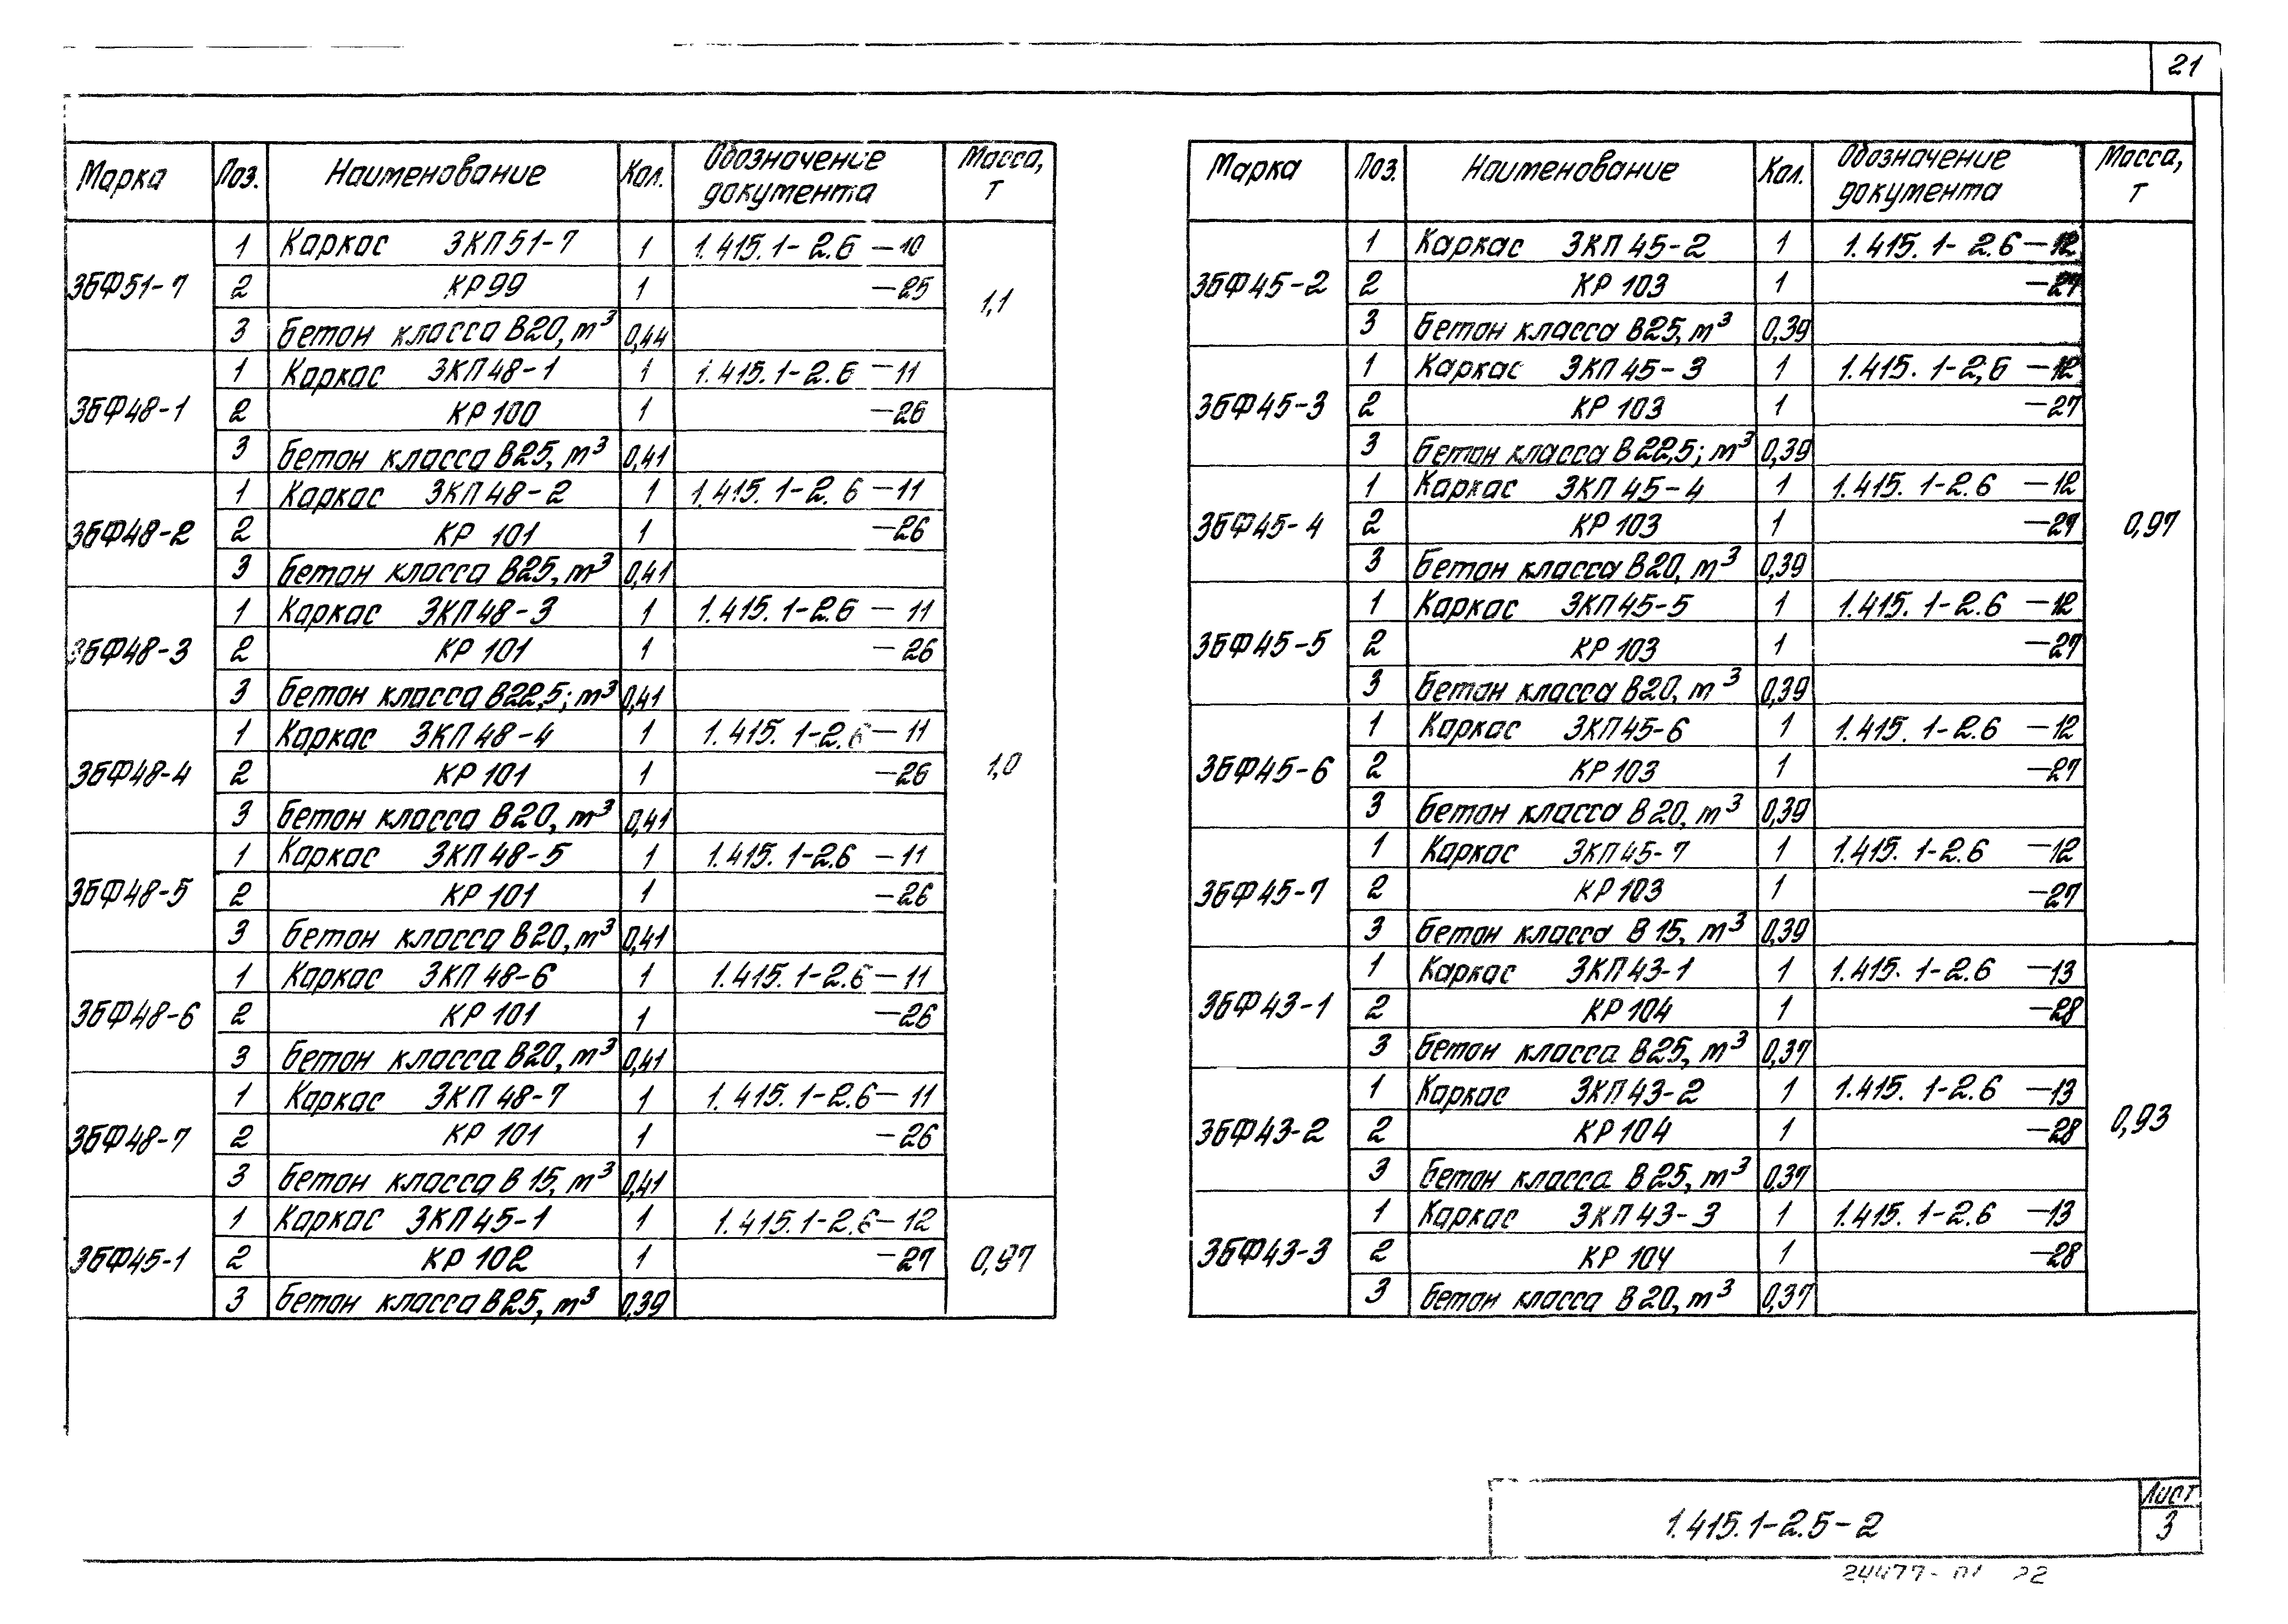 21
Марка Поз. Наименование Кол. Обозначение документа Масса, т
1 Каркас 3КП51-7 1 1.415.1-2.6 -10
3БФ51-7 2 КР99 1 -25 1,1
3 Бетон класса В20, м³ 0,44
1 Каркас 3КП48-1 1 1.415.1-2.6 -11
3БФ48-1 2 КР100 1 -26
3 Бетон класса В25, м³ 0,41
1 Каркас 3КП48-2 1 1.415.1-2.6 -11
3БФ48-2 2 КР 101 1 -26
3 Бетон класса В25, м³ 0,41
1 Каркас 3КП48-3 1 1.415.1-2.6 -11
3БФ48-3 2 КР 101 1 -26
3 Бетон класса В22,5; м³ 0,41
1 Каркас 3КП48-4 1 1.415.1-2.6 -11
3БФ48-4 2 КР101 1 -26 1,0
3 Бетон класса В20, м³ 0,41
1 Каркас 3КП48-5 1 1.415.1-2.6 -11
3БФ48-5 2 КР101 1 -26
3 Бетон класса В20, м³ 0,41
1 Каркас 3КП48-6 1 1.415.1-2.6 -11
3БФ48-6 2 КР101 1 -26
3 Бетон класса В20, м³ 0,41
1 Каркас 3КП48-7 1 1.415.1-2.6 -11
3БФ48-7 2 КР101 1 -26
3 Бетон класса В15, м³ 0,41
1 Каркас 3КП45-1 1 1.415.1-2.6 -12
3БФ45-1 2 КР102 1 -27 0,97
3 Бетон класса В25, м³ 0,39
Марка Поз. Наименование Кол. Обозначение документа Масса, т
1 Каркас 3КП45-2 1 1.415.1-2.6 -12
3БФ45-2 2 КР103 1 -27
3 Бетон класса В25, м³ 0,39
1 Каркас 3КП45-3 1 1.415.1-2,6 -12
3БФ45-3 2 КР103 1 -27
3 Бетон класса В22,5; м³ 0,39
1 Каркас 3КП45-4 1 1.415.1-2.6 -12
3БФ45-4 2 КР103 1 -27 0,97
3 Бетон класса В20, м³ 0,39
1 Каркас 3КП45-5 1 1.415.1-2.6 -12
3БФ45-5 2 КР103 1 -27
3 Бетон класса В20, м³ 0,39
1 Каркас 3КП45-6 1 1.415.1-2.6 -12
3БФ45-6 2 КР103 1 -27
3 Бетон класса В20, м³ 0,39
1 Каркас 3КП45-7 1 1.415.1-2.6 -12
3БФ45-7 2 КР103 1 -27
3 Бетон класса В15, м³ 0,39
1 Каркас 3КП43-1 1 1.415.1-2.6 -13
3БФ43-1 2 КР104 1 -28
3 Бетон класса В25, м³ 0,37
1 Каркас 3КП43-2 1 1.415.1-2.6 -13
3БФ43-2 2 КР104 1 -28 0,93
3 Бетон класса В25, м³ 0,37
1 Каркас 3КП43-3 1 1.415.1-2.6 -13
3БФ43-3 2 КР104 1 -28
3 Бетон класса В20, м³ 0,37
1.415.1-2.5-2
Лист
3
24477-01 22